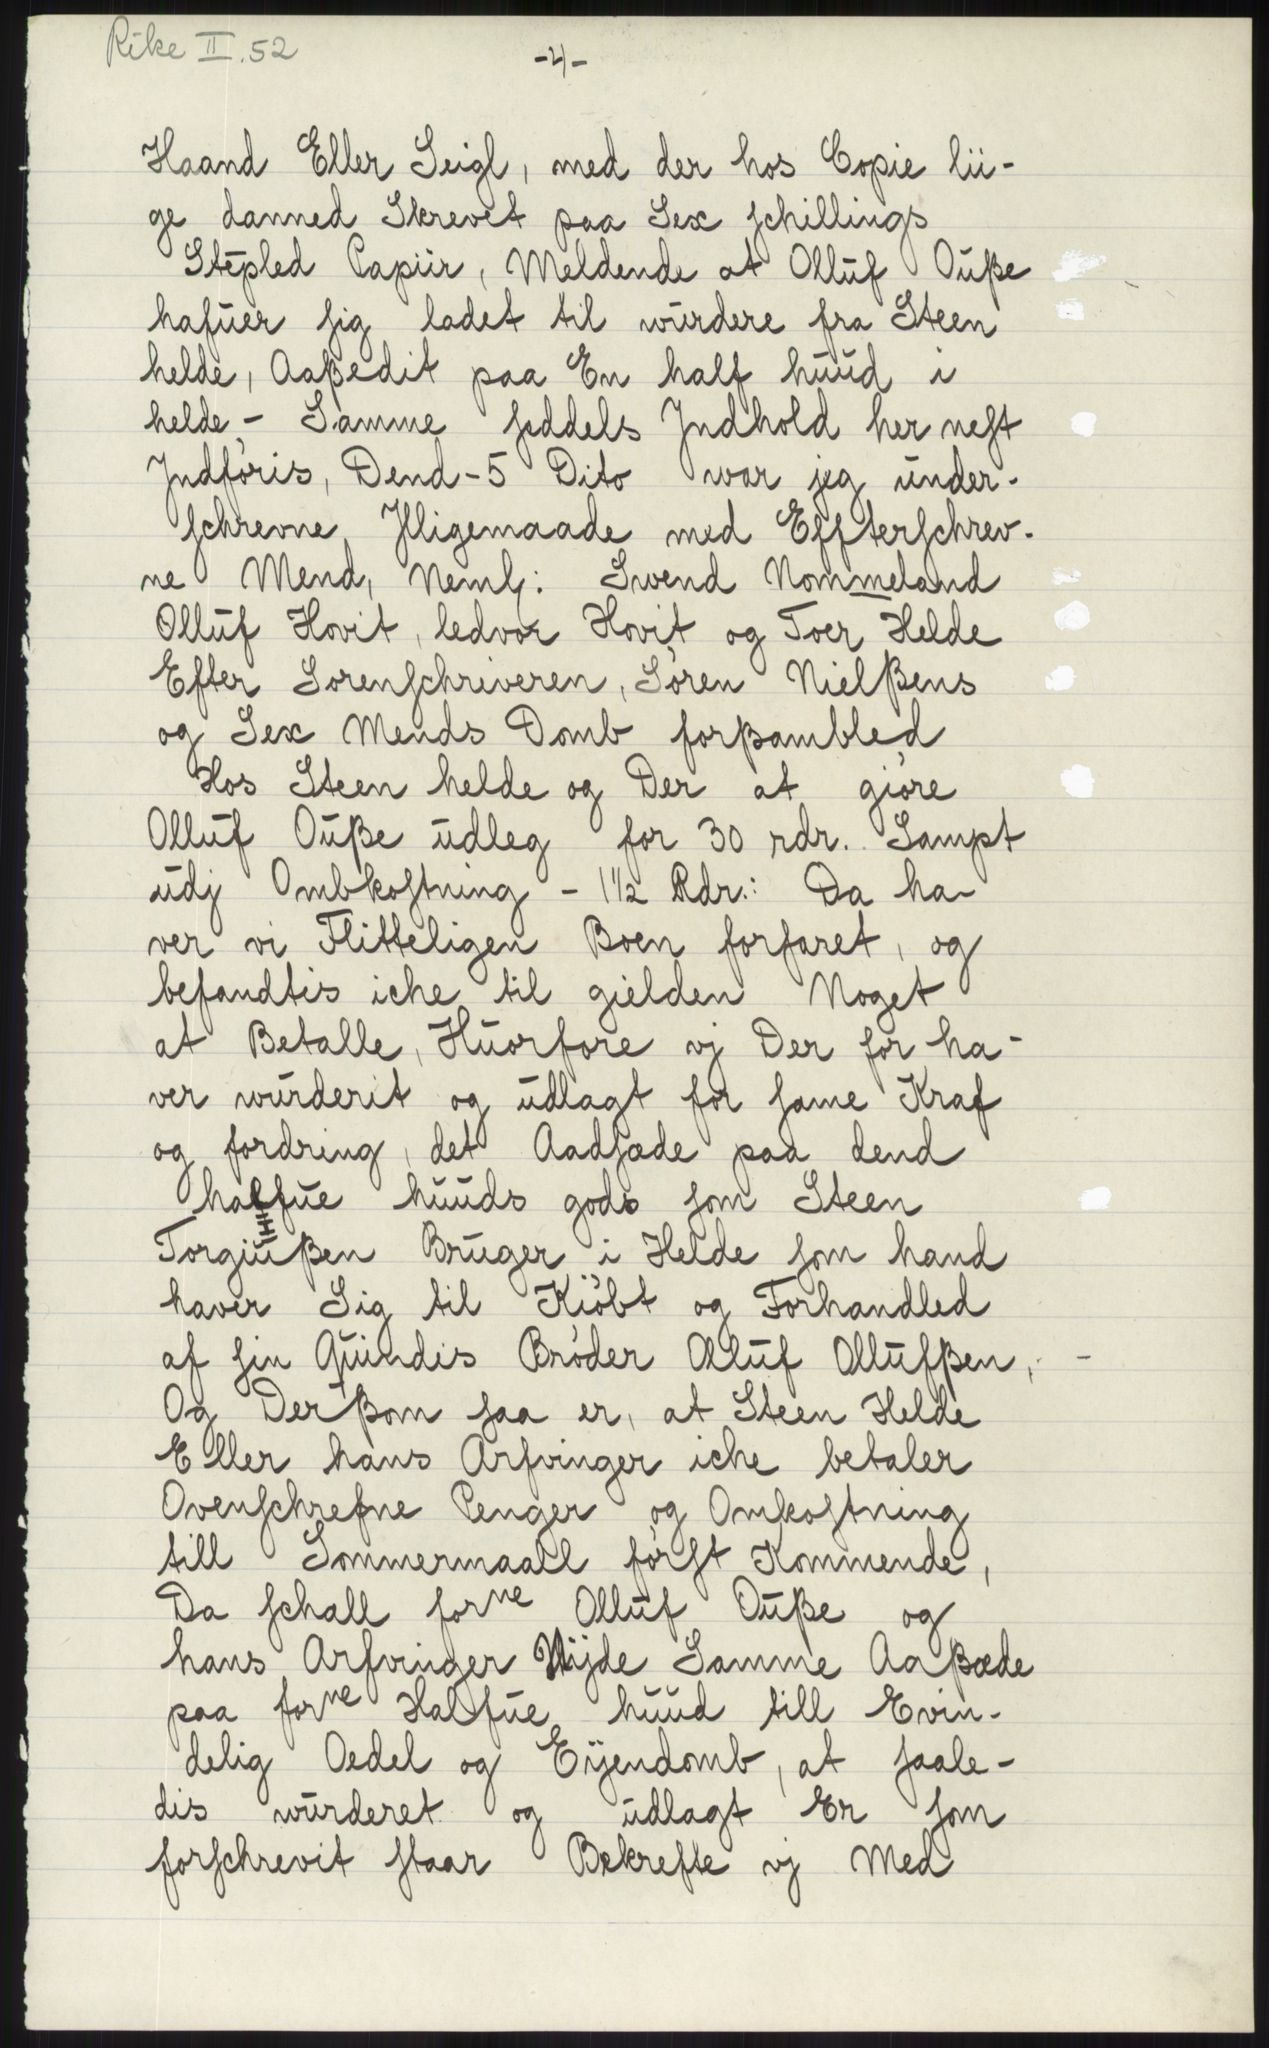 Rike II.52
-4-
Haand Eller Seigl, med der hos Copie lii-
ge danned Skrevet paa Sex schillings
Stepled Papiir, Meldende at Olluf Ouße
hafuer sig ladet til wurdere fra Steen
helde, Aaßedit paa En half huud i
helde - Samme seddels Jndhold her nest
Jndføris, Dend-5 Dito war jeg under-
schrevne Jlligemaade med Effterschrev-
ne Mend, Neml: Swend Nommeland
Olluf Hovit, ledvor Hovit og Toer Helde
Efter Sorenschriveren, Søren Nielßens
og Sex Mends Domb forßambled
Hos Steen helde og Der at giøre
Olluf Ouße udleg for 30 rdr. Sampt
udj Ombkostning - 1 1/2 Rdr.: Da ha-
ver vi Flitteligen Boen forfaret, og
befandtis iche til gielden Noget
at Betalle, Huorfore vj Der for ha-
ver wurderit og udlagt for same Kraf
og fordring, det Aadsæde paa dend
halfue huuds gods som Steen
Torgiußen Bruger i Helde som hand
haver Sig til Kiøbt og Forhandled
af sin Quindis Brøder Olluf Ollufßen,
Og Derßom saa er, at Steen Helde
Eller hans Arfvinger iche betaler
Ovenschrefne Penger og Omkostning
till Sommermaall først Kommende,
Da schall forne Olluf Ouße og
hans Arfvinger Nijde Samme Aaßæde
paa forne Halfue huud till Evin-
delig Oedel og Eijendomb, at saale-
dis wurderet og udlagt Er som
forschrevit staar Bekrefte vj Med